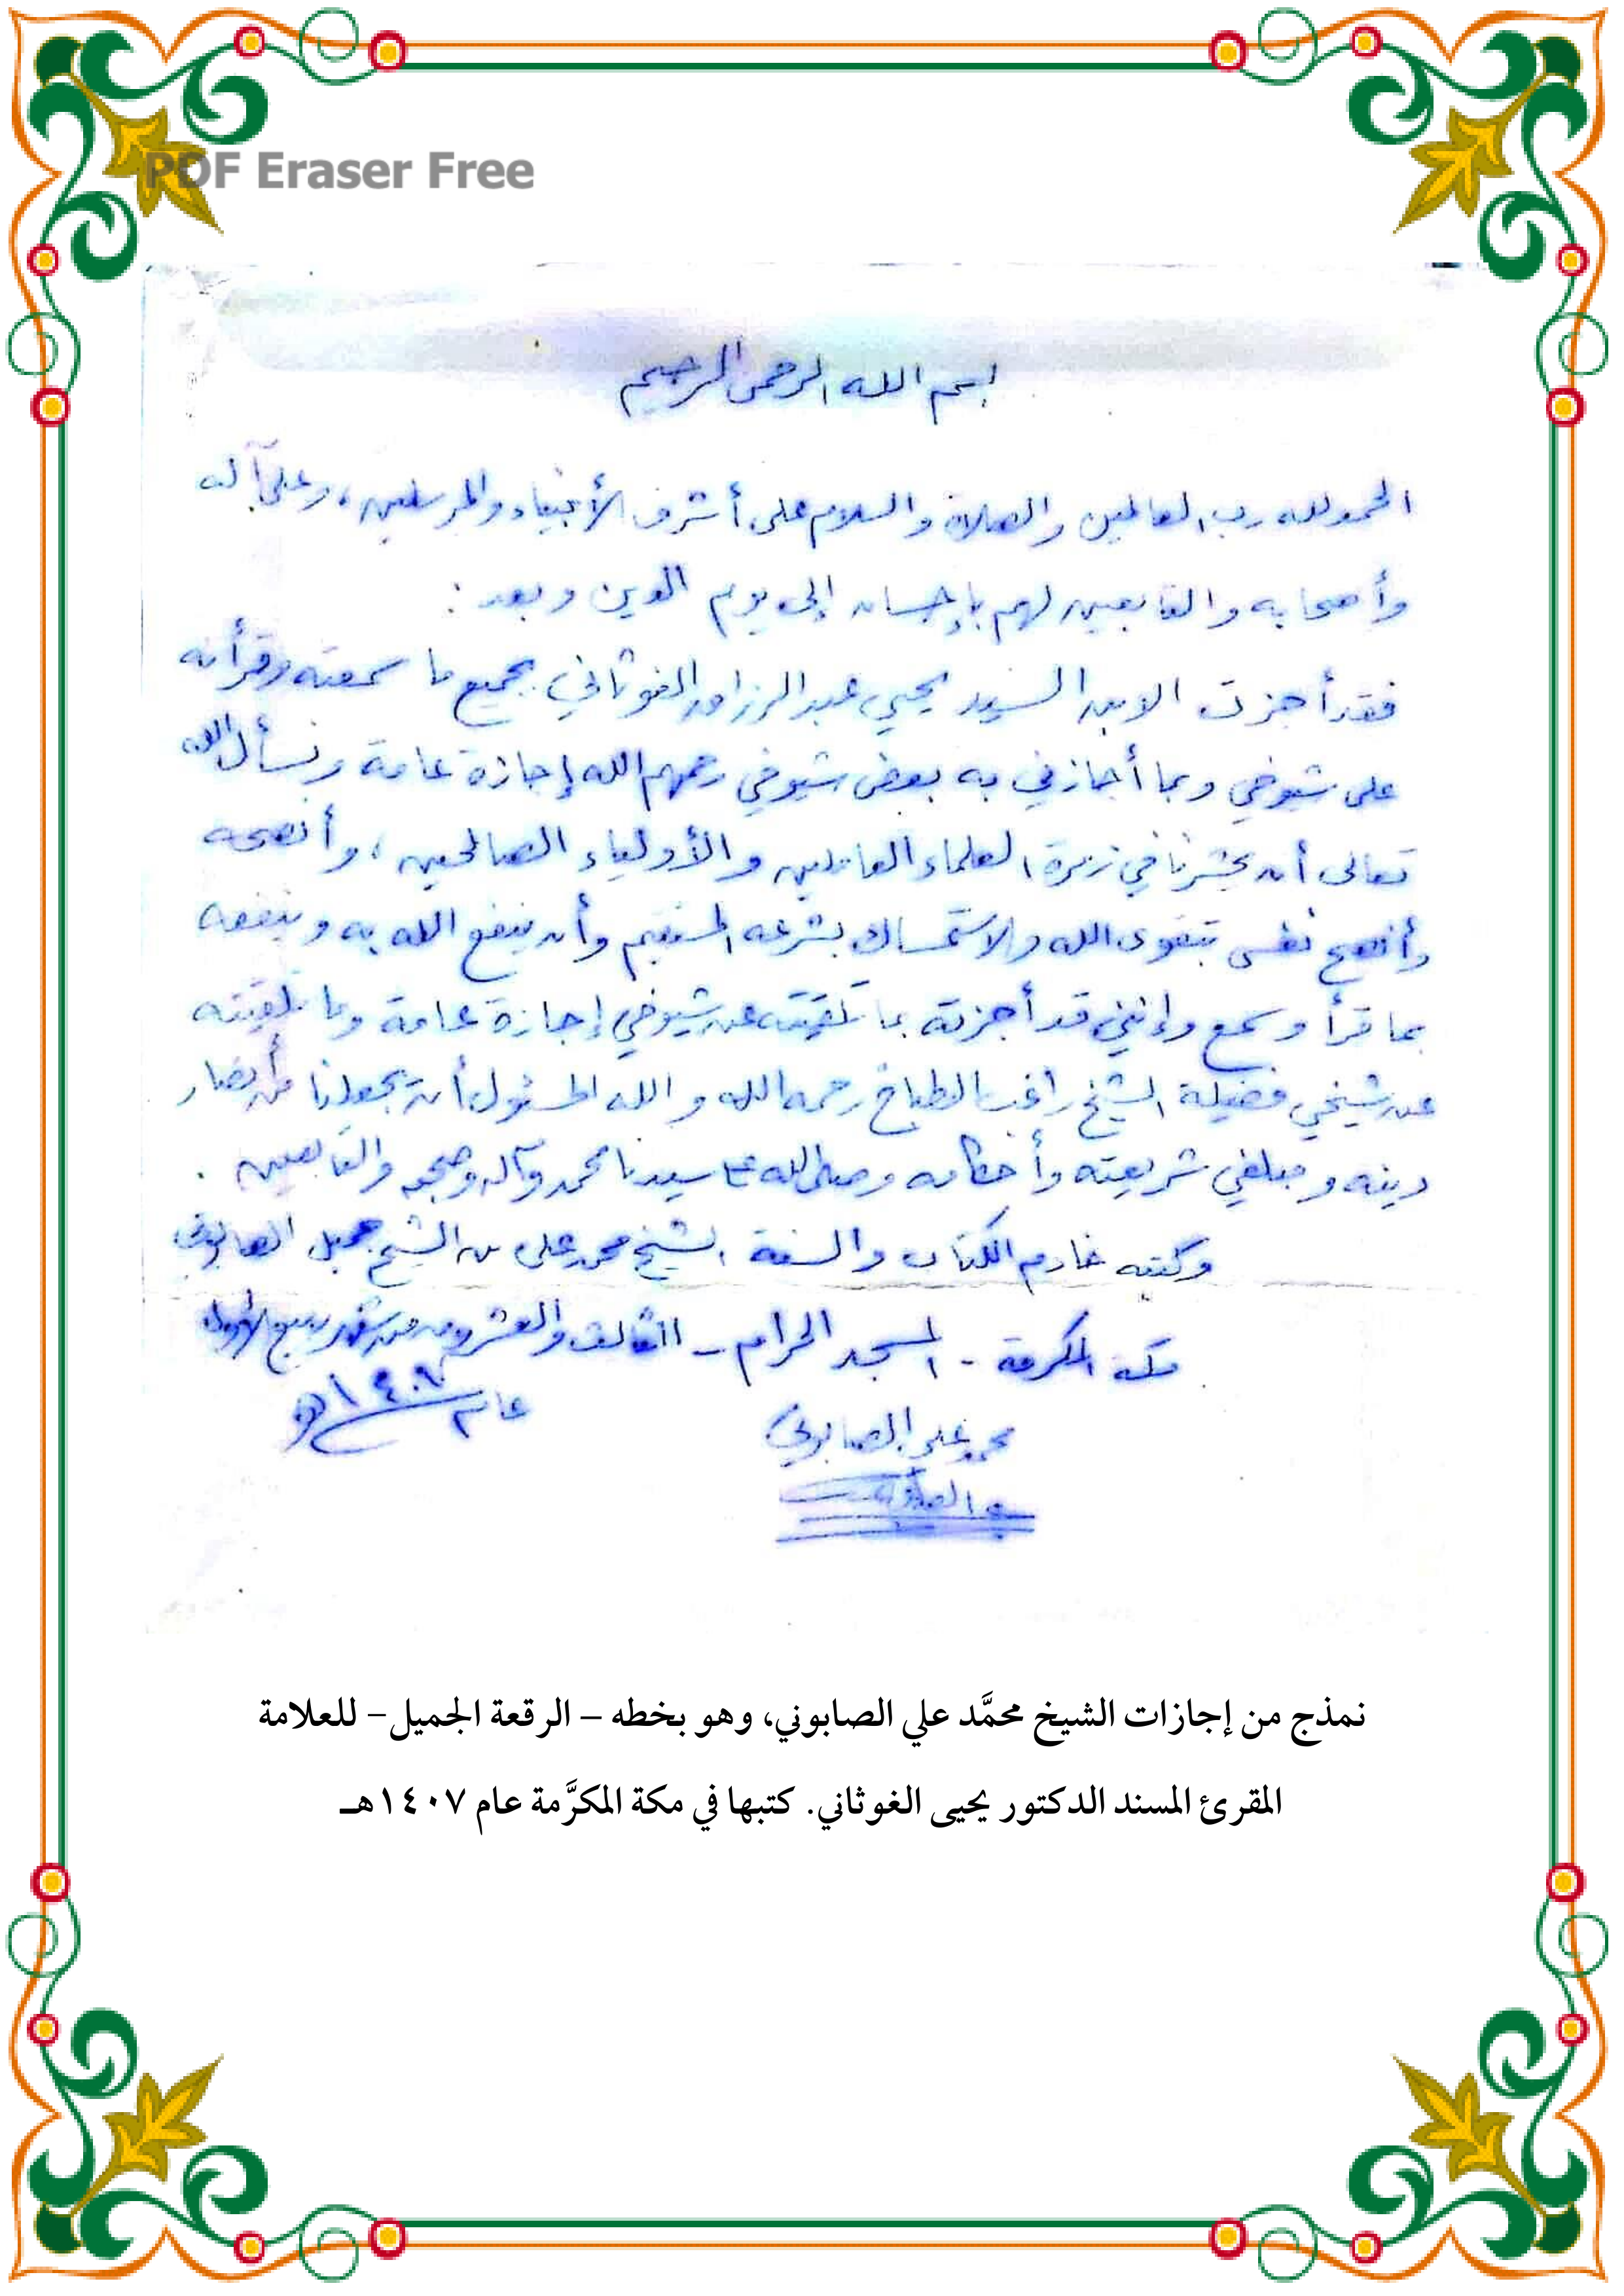 PDF Eraser Free
بسم الله الرحمن الرحيم
الحمد لله رب العالمين والصلاة والسلام على أشرف الأنبياء والمرسلين، وعلى آله
وأصحابه والتابعين لهم بإحسان إلى يوم الدين وبعد :
فقد أجزت الابن السيد يحيى عبد الرزاق الغوثاني بجميع ما سمعته وقرأته
على شيوخي وبما أجازني به بعض شيوخي رحمهم الله إجازة عامة ونسأل الله
تعالى أن يحشرنا في زمرة العلماء العاملين والأولياء الصالحين، وأنصحه
وأنصح نفسي بتقوى الله والاستمساك بشرعه المستقيم وأن ينفع الله به وينفعه
بما قرأ وسمع وإنني قد أجزته بما تلقيته عن شيوخي إجازة عامة وما تلقيته
عن شيخي فضيلة الشيخ راغب الطباخ رحمه الله والله المسئول أن يجعلنا من أنصار
دينه ومبلغي شريعته وأحكامه وصلى الله على سيدنا محمد وآله وصحبه والتابعين .
وكتبه خادم الكتاب والسنة الشيخ محمد علي بن الشيخ جميل الصابوني
مكة المكرمة - المسجد الحرام - الثالث والعشرون من شهر ربيع الأول
عام ١٤٠٧ هـ
محمد علي الصابوني
نمذج من إجازات الشيخ محمَّد علي الصابوني، وهو بخطه – الرقعة الجميل- للعلامة
المقرئ المسند الدكتور يحيى الغوثاني. كتبها في مكة المكرَّمة عام ١٤٠٧هـ